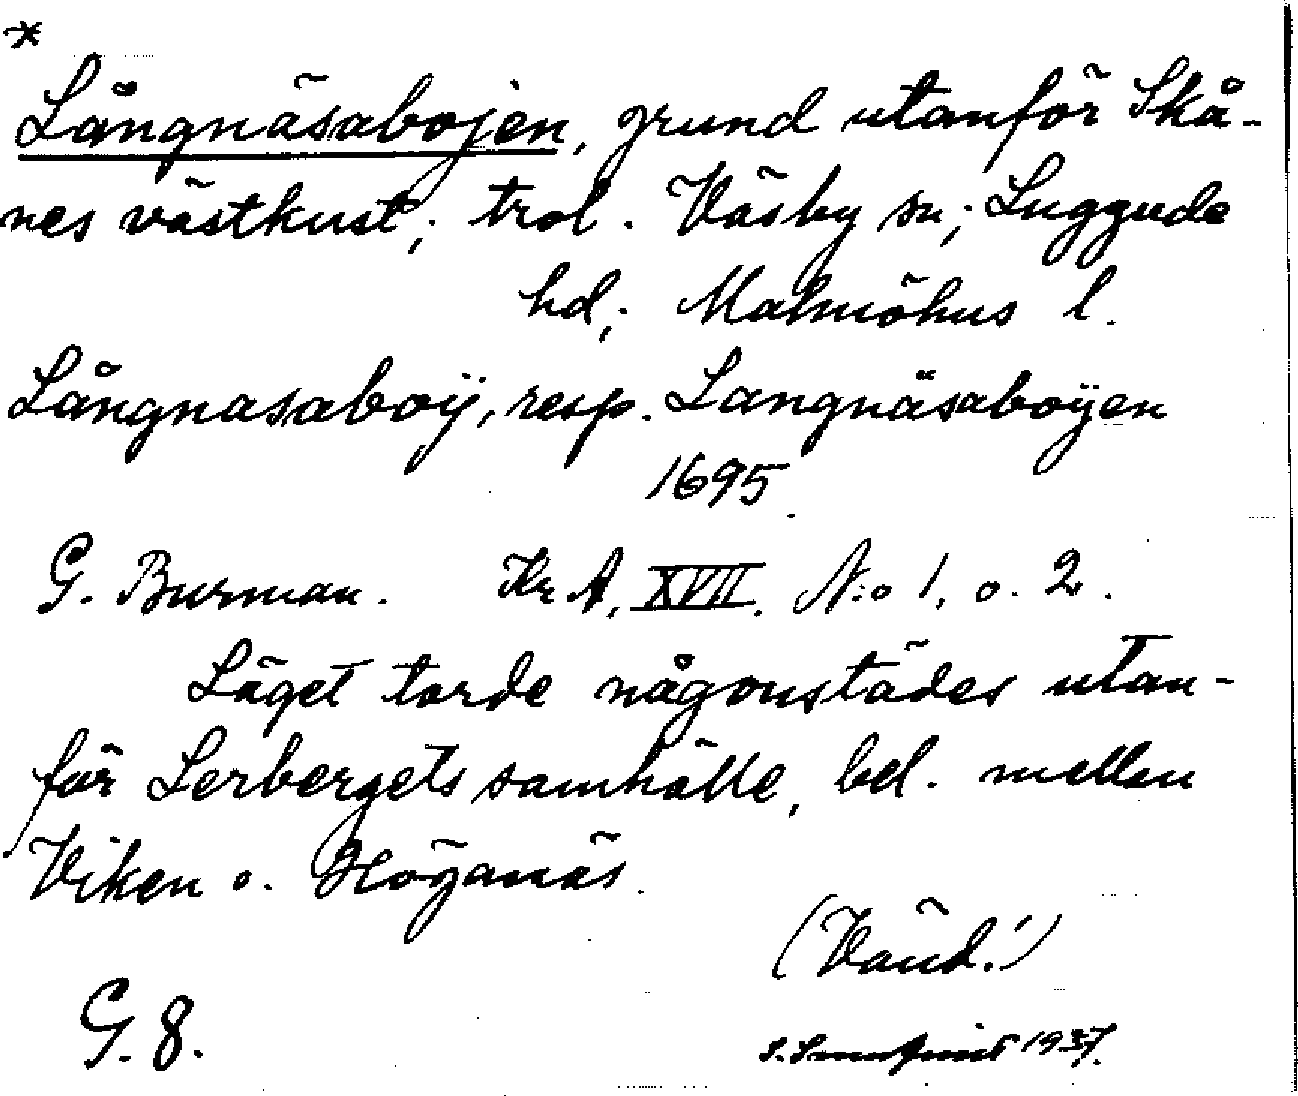 *
Långnäsabojen, grund utanför Skå-
nes västkust; trol. Väsby sn; Luggude
hd; Malmöhus l.
Långnasaboÿ, resp. Langnäsaboÿen
1695.
G. Burman. Kr. A. XVII. N:o 1. o. 2.
Läget torde någonstädes utan-
för Lerbergets samhälle, bel. mellan
Viken o. Höganäs.
(Vänd!)
G. 8.
S. Sundqvist 1937.